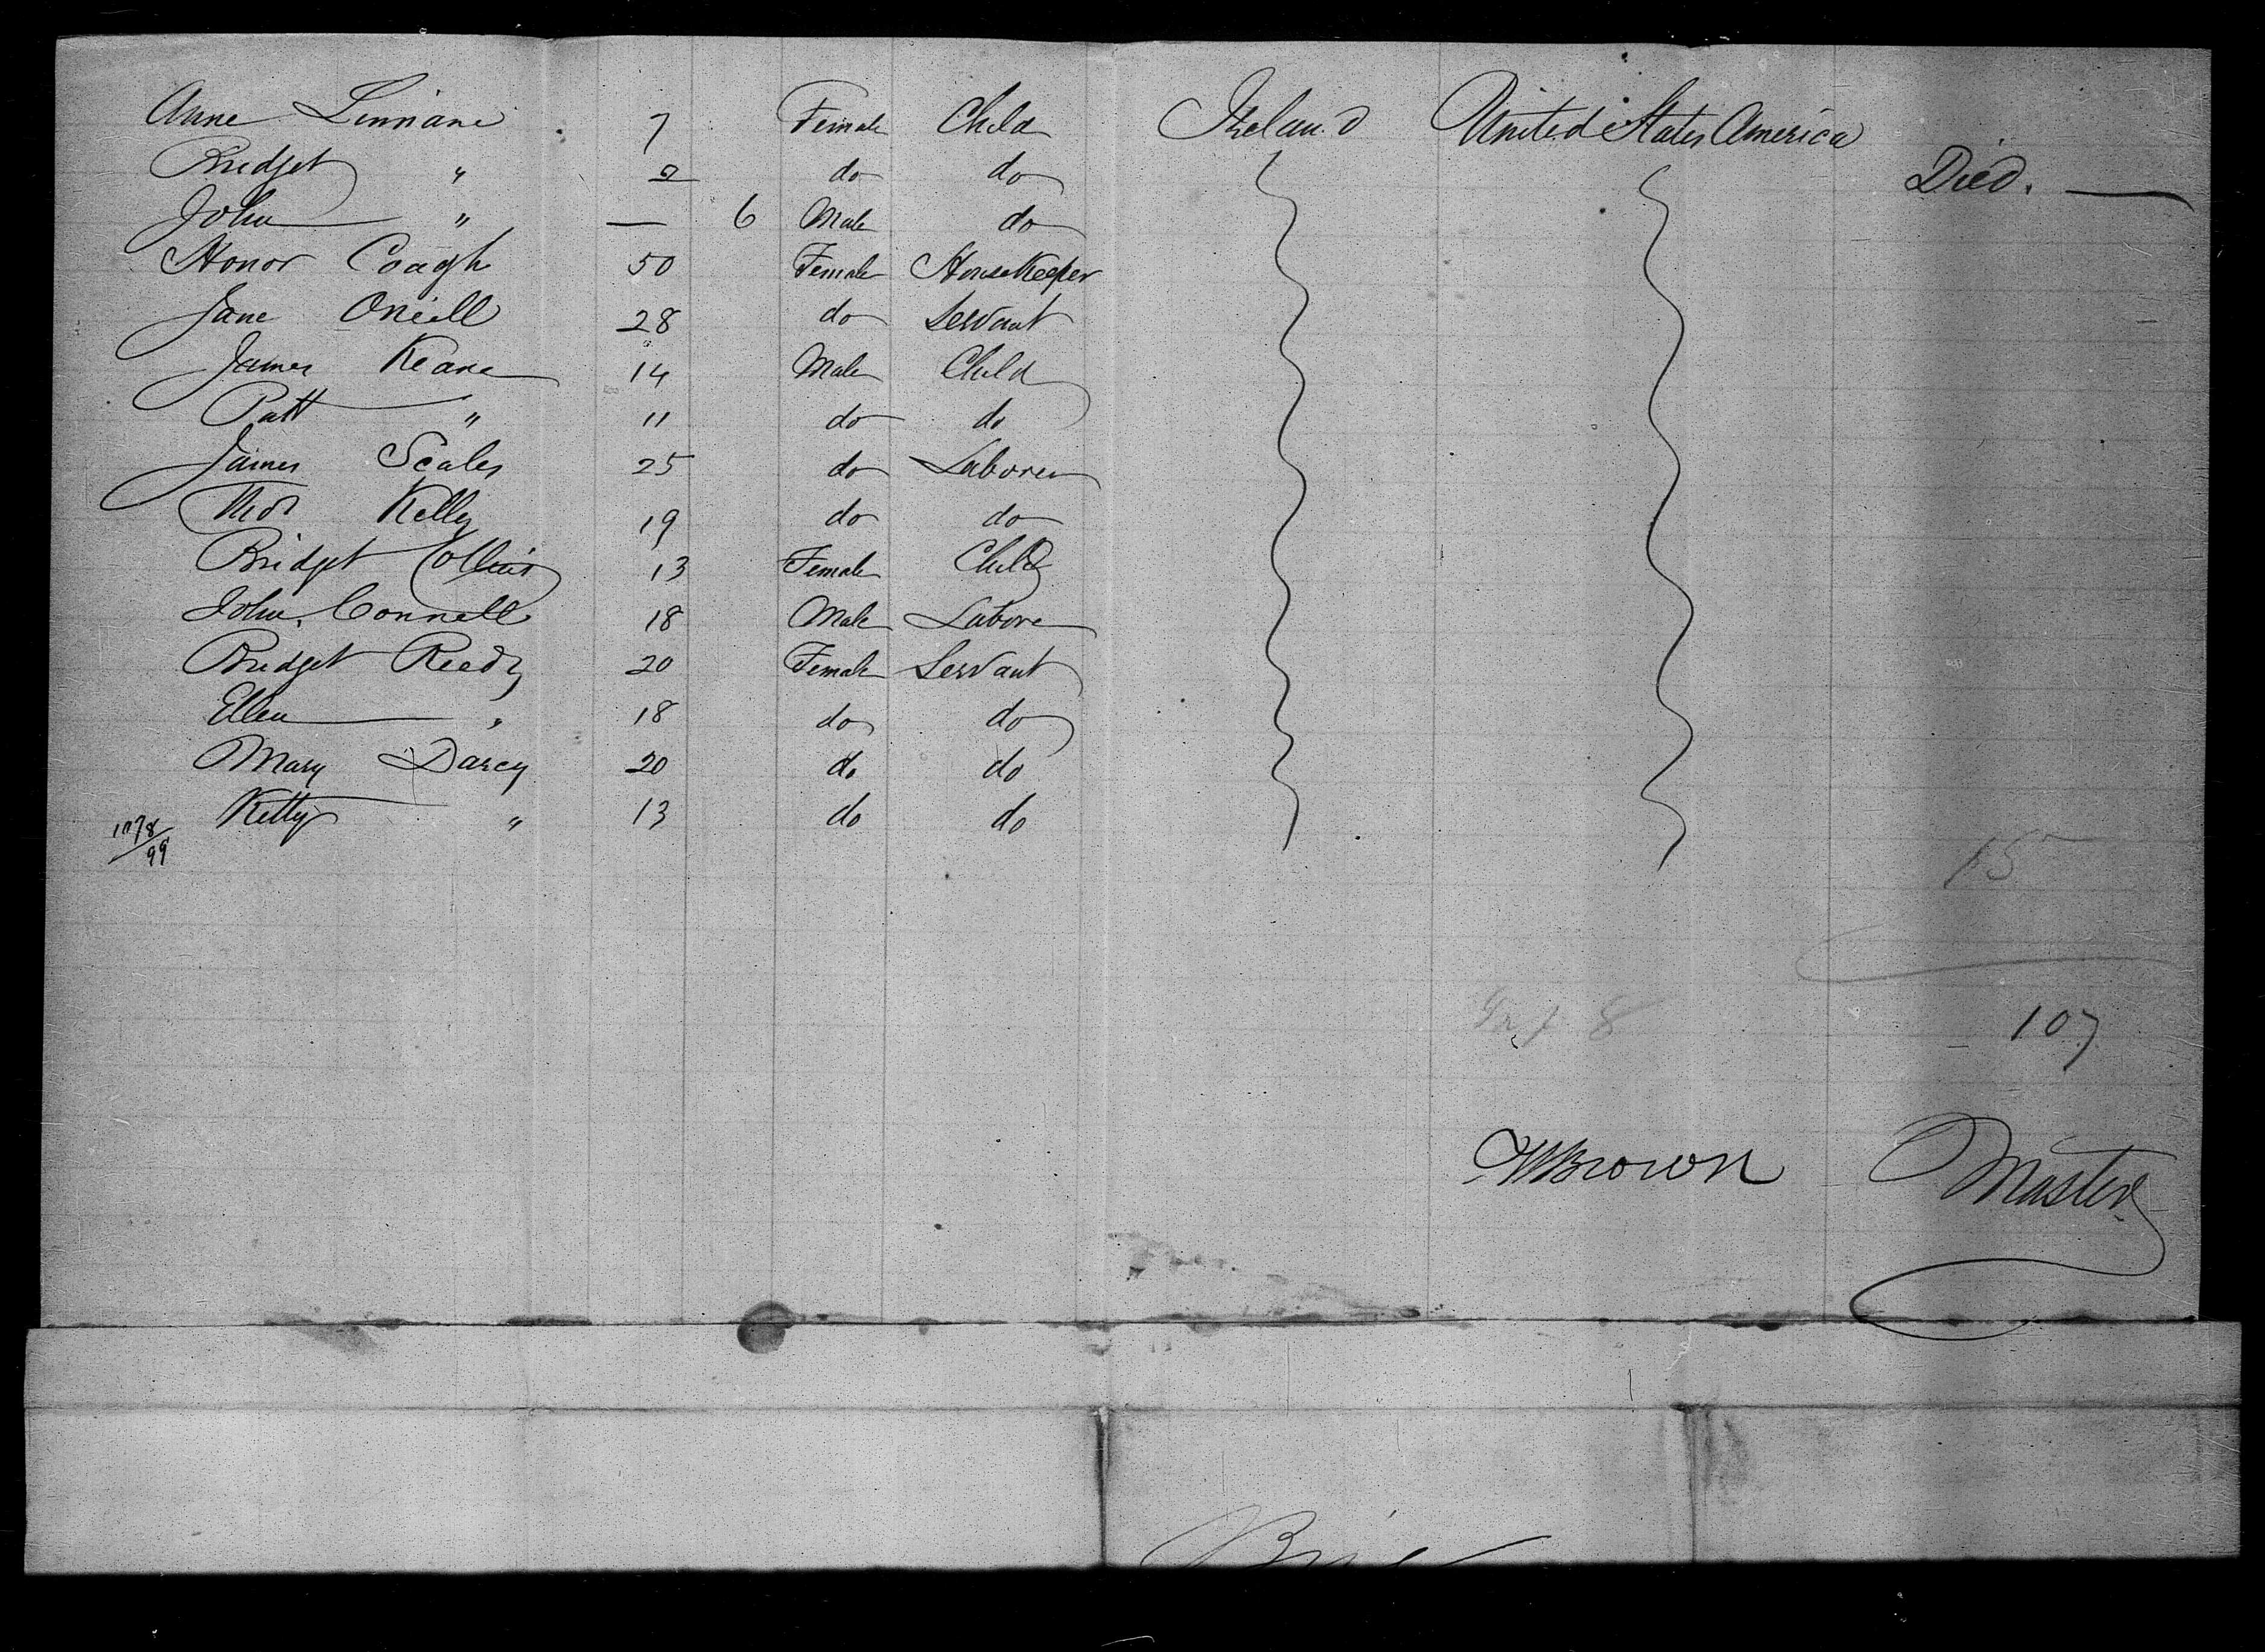 Anne Linnane 7 Female Child Ireland United States America
Bridget " 2 do do Died.
John " — 6 Male do
Honor Coagh 50 Female Housekeeper
Jane Oneill 28 do Servant
James Keane 14 Male Child
Patt " 11 do do
James Scales 25 do Laborer
Thos Kelly 19 do do
Bridget Collins 13 Female Child
John Connell 18 Male Labore
Bridget Reedy 20 Female Servant
Ellen " 18 do do
Mary Darcy 20 do do
Kitty " 13 do do
99
15
8
107
Brown Master